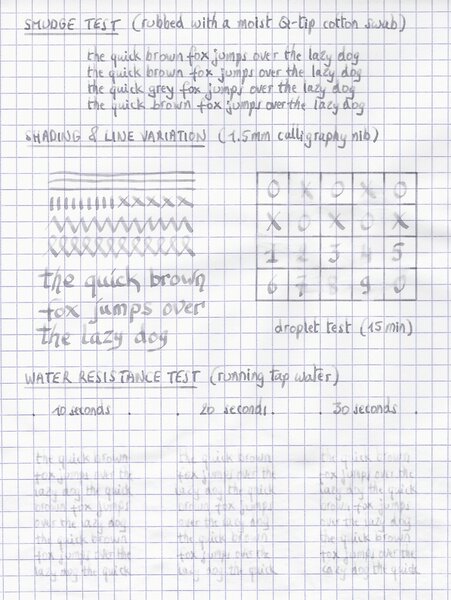 SMUDGE TEST (rubbed with a moist Q-tip cotton swab)
the quick brown fox jumps over the lazy dog
the quick brown fox jumps over the lazy dog
the quick grey fox jumps over the lazy dog
the quick brown fox jumps over the lazy dog
SHADING & LINE VARIATION (1.5mm calligraphy nib)
O X O X O
X O X O X
1 2 3 4 5
6 7 8 9 0
the quick brown
fox jumps over
the lazy dog
droplet test (15 min)
WATER RESISTANCE TEST (running tap water)
10 seconds
20 seconds
30 seconds
the quick brown
fox jumps over the
lazy dog the quick
brown fox jumps
over the lazy dog
the quick brown
fox jumps over the
lazy dog the quick
the quick brown
fox jumps over the
lazy dog the quick
brown fox jumps
over the lazy dog
the quick brown
fox jumps over the
lazy dog the quick
the quick brown
fox jumps over the
lazy dog the quick
brown fox jumps
over the lazy dog
the quick brown
fox jumps over the
lazy dog the quick